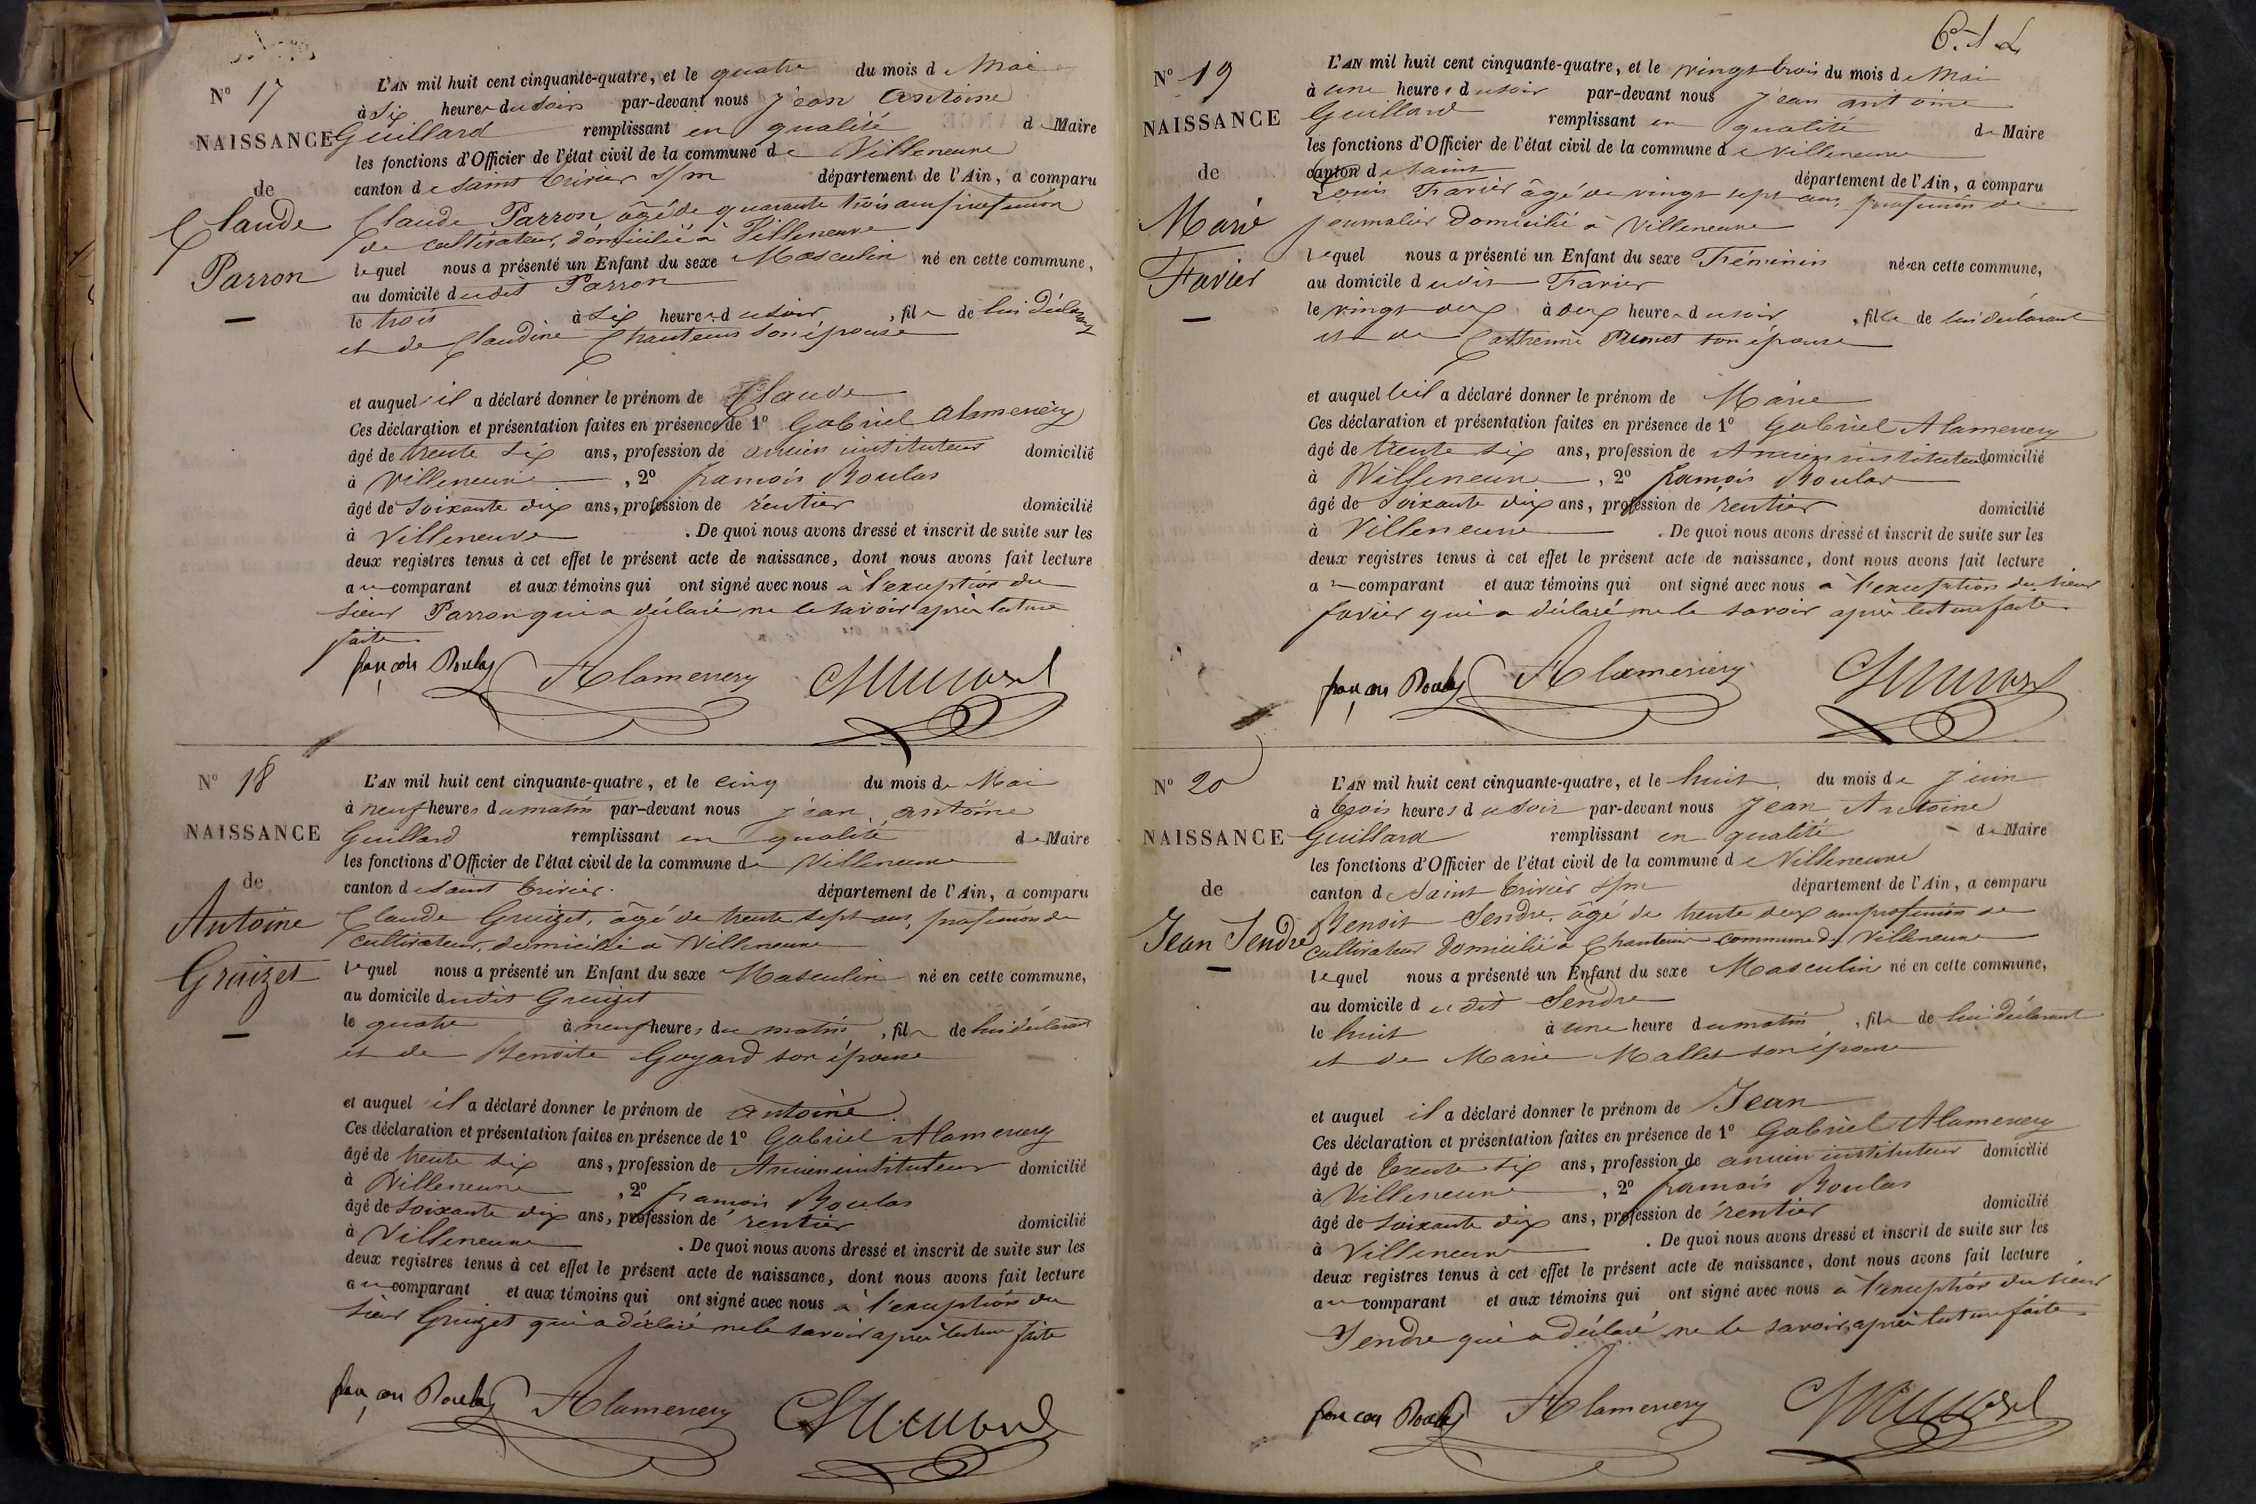 N° 17
NAISSANCE
de
Claude
Parron
L'AN mil huit cent cinquante-quatre, et le quatre du mois de Mai
à six heures du soir par-devant nous Jean Antoine
Guillard remplissant en qualité de Maire
les fonctions d'Officier de l'état civil de la commune de Villeneuve
canton de Saint Trivier s/m département de l'Ain, a comparu
Claude Parron, âgé de quarante trois ans profession
de cultivateur, domicilié à Villeneuve
lequel nous a présenté un Enfant du sexe Masculin né en cette commune,
au domicile dudit Parron
le trois à six heures du soir, fils de lui déclarant
et de Claudine Chanteur son épouse
et auquel il a déclaré donner le prénom de Claude
Ces déclaration et présentation faites en présence de 1° Gabriel Alamenery
âgé de trente six ans, profession de ancien instituteur domicilié
à Villeneuve, 2° françois Boulas
âgé de soixante dix ans, profession de rentier domicilié
à Villeneuve. De quoi nous avons dressé et inscrit de suite sur les
deux registres tenus à cet effet le présent acte de naissance, dont nous avons fait lecture
au comparant et aux témoins qui ont signé avec nous à l'exception du
sieur Parron qui a déclaré ne le savoir après lecture
faite
françois Boulas Alamenery
N° 18
NAISSANCE
de
Antoine
Gruizet
L'AN mil huit cent cinquante-quatre, et le cinq du mois de Mai
à neuf heures du matin par-devant nous jean antoine
Guillard remplissant en qualité de Maire
les fonctions d'Officier de l'état civil de la commune de Villeneuve
canton de Saint Trivier département de l'Ain, a comparu
Claude Gruizet, âgé de trente sept ans, profession de
cultivateur, domicilié à Villeneuve
lequel nous a présenté un Enfant du sexe Masculin né en cette commune,
au domicile dudit Gruizet
le quatre à neuf heures du matin, fils de lui déclarant
et de Benoite Goyard son épouse
et auquel il a déclaré donner le prénom de antoine
Ces déclaration et présentation faites en présence de 1° Gabriel Alamenery
âgé de trente six ans, profession de Ancien instituteur domicilié
à Villeneuve, 2° francois Boulas
âgé de soixante dix ans, profession de rentier domicilié
à Villeneuve. De quoi nous avons dressé et inscrit de suite sur les
deux registres tenus à cet effet le présent acte de naissance, dont nous avons fait lecture
au comparant et aux témoins qui ont signé avec nous à l'exception du
sieur Gruizet qui a déclaré ne le savoir après lecture faite
françois Boulas Alamenery
N° 19
NAISSANCE
de
Marie
Favier
L'AN mil huit cent cinquante-quatre, et le vingt trois du mois de Mai
à une heures du soir par-devant nous Jean antoine
Guillard remplissant en qualité de Maire
les fonctions d'Officier de l'état civil de la commune de Villeneuve
canton de Saint département de l'Ain, a comparu
Louis Favier âgé de vingt sept ans, profession de
journalier Domicilié à Villeneuve
lequel nous a présenté un Enfant du sexe Féminin née en cette commune,
au domicile dudit Favier
le vingt deux à deux heures du soir, fille de lui déclarant
et de Catherine Prunet son épouse
et auquel il a déclaré donner le prénom de Marie
Ces déclaration et présentation faites en présence de 1° Gabriel Alamenery
âgé de trente six ans, profession de Ancien instituteur domicilié
à Villeneuve, 2° françois Boulas
âgé de soixante dix ans, profession de rentier domicilié
à Villeneuve. De quoi nous avons dressé et inscrit de suite sur les
deux registres tenus à cet effet le présent acte de naissance, dont nous avons fait lecture
au comparant et aux témoins qui ont signé avec nous à l'exception du sieur
favier qui a déclaré ne le savoir après lecture faite
françois Boulas Alamenery
N° 20
NAISSANCE
de
Jean Sendre
L'AN mil huit cent cinquante-quatre, et le huit du mois de Juin
à trois heures du soir par-devant nous Jean Antoine
Guillard remplissant en qualité de Maire
les fonctions d'Officier de l'état civil de la commune de Villeneuve
canton de Saint Trivier s/m département de l'Ain, a comparu
Benoit Sendre, âgé de trente deux ans profession de
cultivateur Domicilié à Chanteins commune de Villeneuve
lequel nous a présenté un Enfant du sexe Masculin né en cette commune,
au domicile dudit Sendre
le huit à une heure du matin, fils de lui déclarant
et de Marie Mallet son épouse
et auquel il a déclaré donner le prénom de Jean
Ces déclaration et présentation faites en présence de 1° Gabriel Alamenery
âgé de trente six ans, profession de ancien instituteur domicilié
à Villeneuve, 2° francois Boulas
âgé de soixante dix ans, profession de rentier domicilié
à Villeneuve. De quoi nous avons dressé et inscrit de suite sur les
deux registres tenus à cet effet le présent acte de naissance, dont nous avons fait lecture
au comparant et aux témoins qui ont signé avec nous à l'exception du sieur
Sendre qui a déclaré ne le savoir, après lecture faite
françois Boulas Alamenery